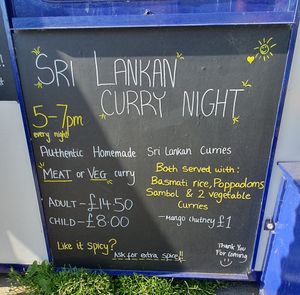 SRI LANKAN
CURRY NIGHT
5-7pm
every night!
Authentic Homemade Sri Lankan Curries
MEAT or VEG curry
ADULT - £14.50
CHILD - £8.00
Both served with:
Basmati rice, Poppadoms
Sambol & 2 vegetable
Curries
- Mango chutney £1
Like it Spicy?
Ask for extra spice!!
Thank You
For Coming